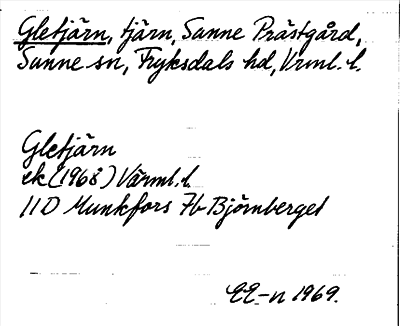 Gletjärn, tjärn, Sunne Prästgård,
Sunne sn, Fryksdals hd, Vrml. l.
Gletjärn
ek (1968) Värml. l.
11D Munkfors 7b Björnberget
1969.